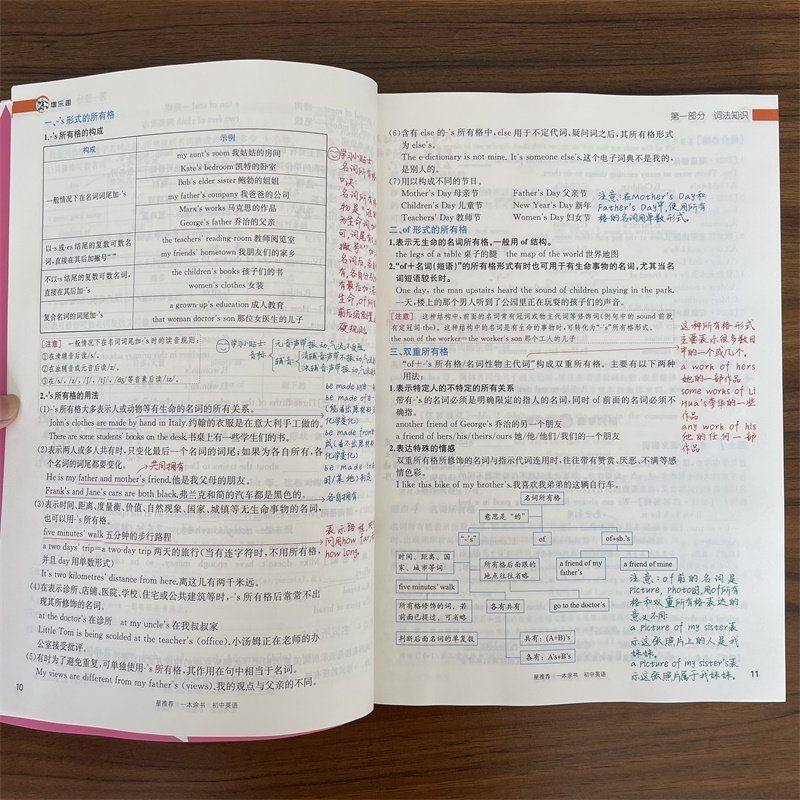 增乐趣
一、-'s 形式的所有格
1.-'s 所有格的构成
构成
示例
一般情况下在名词词尾加-'s
my aunt's room 我姑姑的房间
Kate's bedroom 凯特的卧室
Bob's elder sister 鲍勃的姐姐
my father's company 我爸爸的公司
Marx's works 马克思的作品
George's father 乔治的父亲
以-s 或-es 结尾的复数可数名
词,直接在其后加撇号"'"
the teachers' reading-room 教师阅览室
my friends' hometown 我朋友们的家乡
不以-s 结尾的复数可数名词,
直接在其后加-'s
the children's books 孩子们的书
women's clothes 女装
复合名词的词尾加-'s
a grown-up's education 成人教育
that woman doctor's son 那位女医生的儿子
学习小贴士
名词所有格
口诀:
名词所有格
[注意] 一般情况下在名词词尾加-'s 时的读音规则:
①在清辅音后读/s/。
②在浊辅音或元音后读/z/。
学习小贴士
音标
元音声带振动,气流不受阻
辅音
清辅音声带不振动
浊辅音声带振动
2.-'s 所有格的用法
(1)-'s 所有格大多表示人或动物等有生命的名词的所有关系。
John's clothes are made by hand in Italy.约翰的衣服是在意大利手工做的。
There are some students' books on the desk.书桌上有一些学生们的书。
(2)表示两人或多人共有时,只变化最后一个名词的词尾;如果为各自所有,各
个名词的词尾都要变化。
共同拥有
He is my father and mother's friend.他是我父母的朋友。
Frank's and Jane's cars are both black.弗兰克和简的汽车都是黑色的。
各自所有
(3)表示时间、距离、度量衡、价值、自然现象、国家、城镇等无生命事物的名词,
也可以用-'s 所有格。
five minutes' walk 五分钟的步行路程
a two days' trip=a two-day trip 两天的旅行(当有连字符时,不用所有格,
并且 day 用单数形式)
It's two kilometres' distance from here.离这儿有两千米远。
how long.
(4)在表示诊所、店铺、医院、学校、住宅或公共建筑等时,-'s 所有格后常常不出
现其所修饰的名词。
at the doctor's 在诊所 at my uncle's 在我叔叔家
Little Tom is being scolded at the teacher's (office).小汤姆正在老师的办
公室接受批评。
(5)有时为了避免重复,可单独使用-'s 所有格,其作用在句中相当于名词。
My views are different from my father's (views).我的观点与父亲的不同。
10
星推荐 一本涂书 初中英语
第一部分 词法知识
(6)含有 else 的-'s 所有格中,else 用于不定代词、疑问词之后,其所有格形式
为 else's。
The e-dictionary is not mine. It's someone else's.这个电子词典不是我的,
是别人的。
(7)用以构成不同的节日。
Mother's Day 母亲节 Father's Day 父亲节
Children's Day 儿童节 New Year's Day 新年
Teachers' Day 教师节 Women's Day 妇女节
注意:在Mother's Day和
Father's Day中,使用所有
格的名词用单数形式。
二、of 形式的所有格
1.表示无生命的名词所有格,一般用 of 结构。
the legs of a table 桌子的腿 the map of the world 世界地图
2."of+名词(短语)"的所有格形式有时也可用于有生命事物的名词,尤其当名
词短语较长时。
One day, the man upstairs heard the sound of children playing in the park.
一天,楼上的那个男人听到了公园里正在玩耍的孩子们的声音。
[注意] 这种结构中,前面的名词常有冠词或物主代词等修饰词(例句中的 sound 前就
有定冠词 the)。这种结构中的名词是有生命的事物时,可转化为"-'s"所有格形式。
the son of the worker=the worker's son 那个工人的儿子
三、双重所有格
"of+-'s 所有格/名词性物主代词"构成双重所有格。主要有以下两种
用法:
1.表示特定人的不特定的所有关系
带有-'s 的名词必须是明确限定的指人的名词,同时 of 前面的名词必须不
确指。
another friend of George's 乔治的另一个朋友
a friend of hers/his/theirs/ours 她/他/他们/我们的一个朋友
2.表达特殊的情感
双重所有格所修饰的名词与指示代词连用时,往往带有赞赏、厌恶、不满等感
情色彩。
I like this bike of my brother's.我喜欢我弟弟的这辆自行车。
这种所有格形式
主要表示很多数目
中的一个或几个。
a work of hers
她的一部作品
some works of Li
Hua's李华的一些
作品
any work of his
他的任何一部
作品
名词所有格
意思是"的"
"-'s"
of
of+sb.'s
时间、距离、国
家、城市等词
所有格后面跟的
地点往往省略
a friend of my
father's
a friend of mine
five minutes' walk
所有格修饰的词,若
前面已提过,可省略
各有共有
go to the doctor's
判断后面名词的单复数
共有:(A+B)'s
各有:A's+B's
注意:of前的名词是
picture, photo时,用of所有
格和双重所有格表达的
意义不同:
a picture of my sister表
示这张照片上的人是我
妹妹。
a picture of my sister's表
示这张照片属于我妹妹。
星推荐 一本涂书 初中英语
11